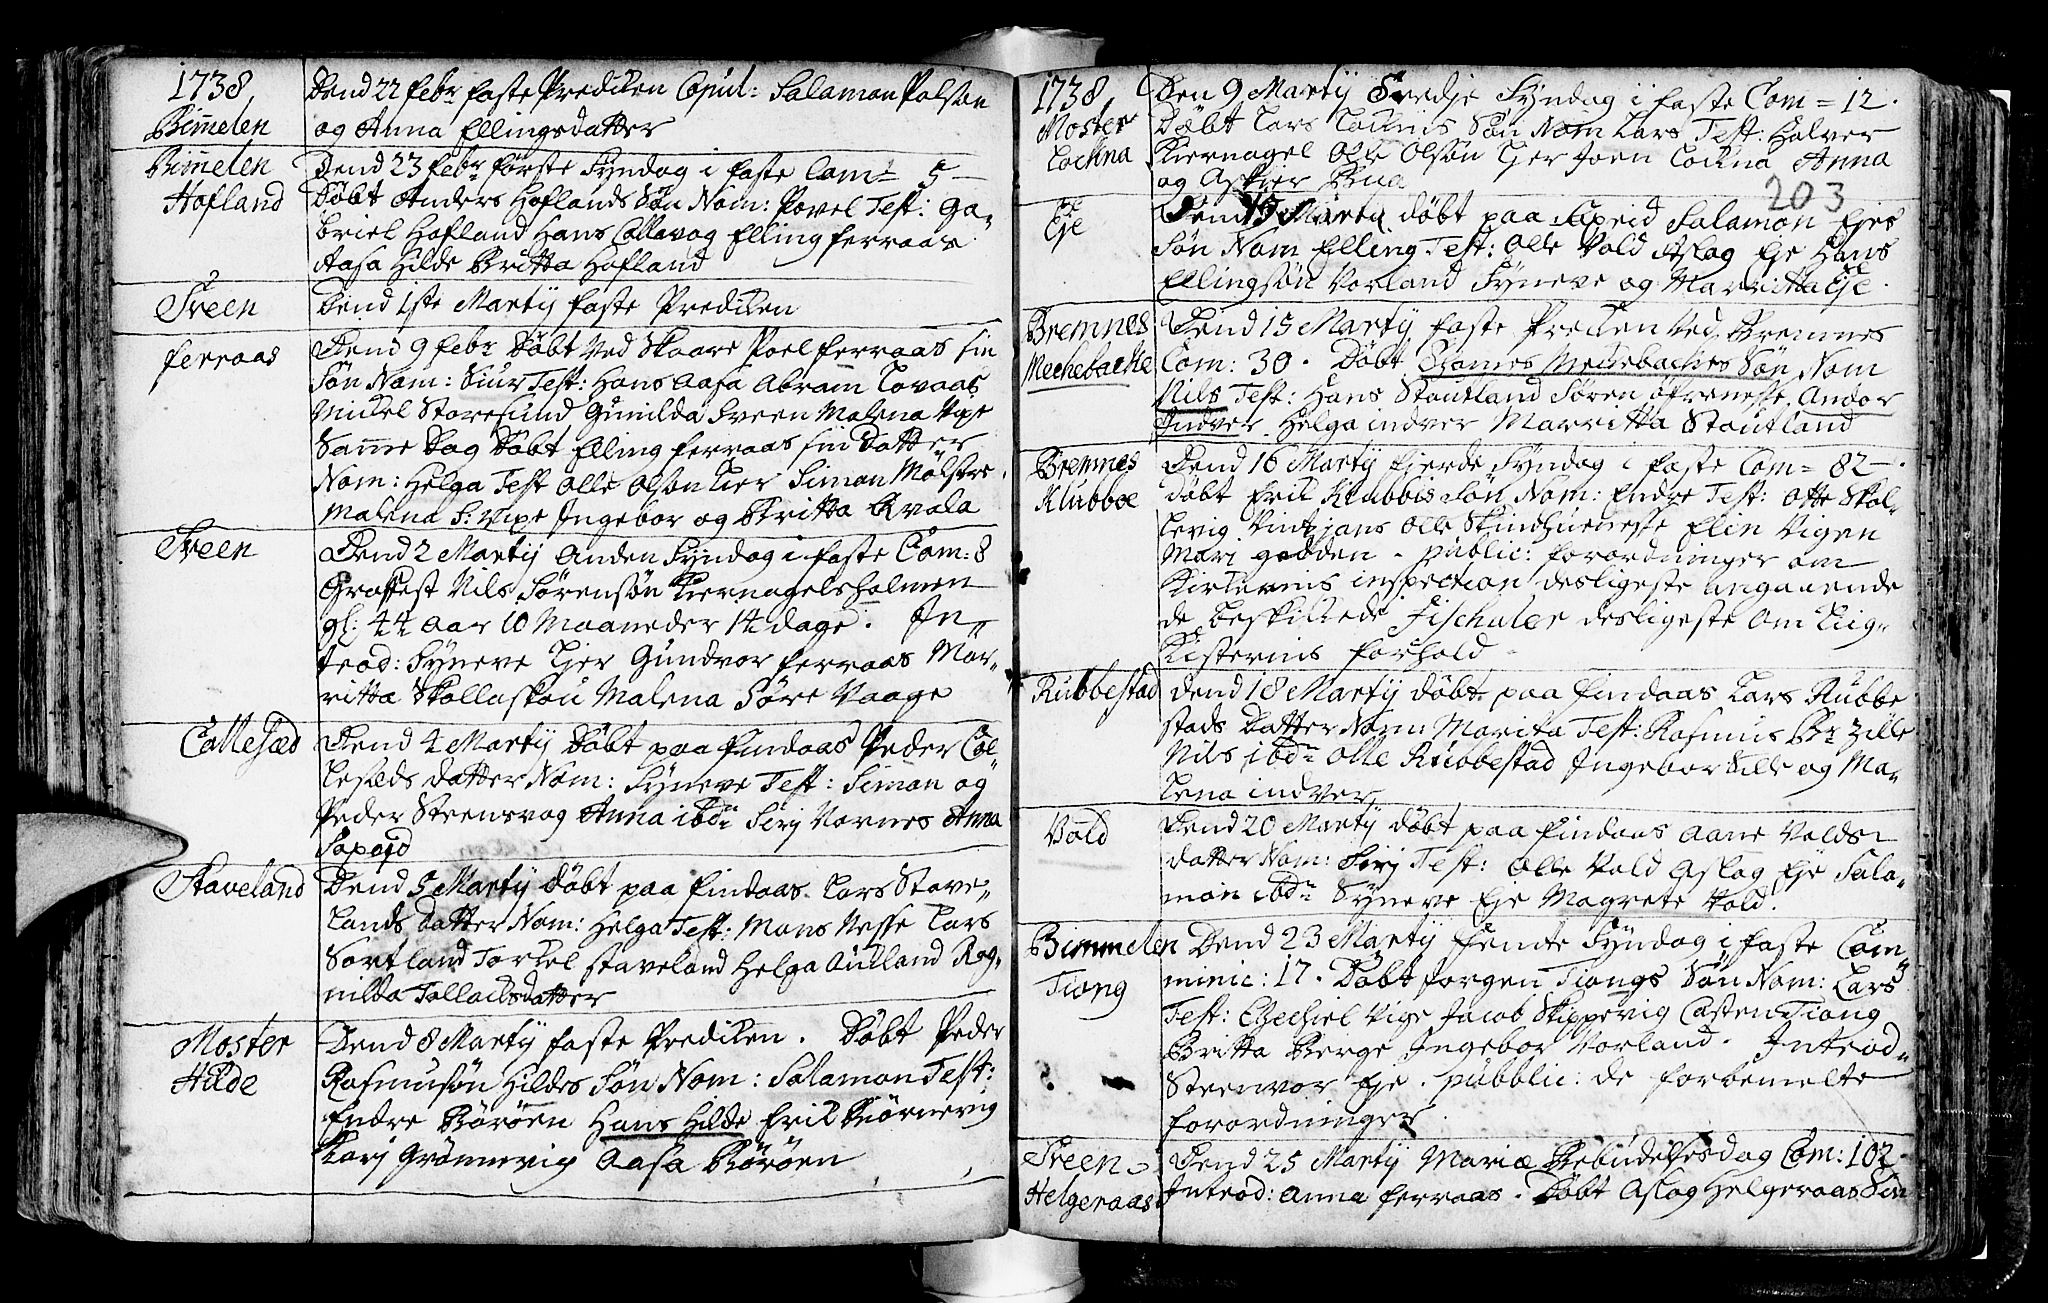 1738
Bimelen
Dend 22 febr faste Prediken Copul: Salamon Polsøn
og Anna Ellingsdatter
Bimelen
Hofland
Dend 23 febr første Syndag i faste Com= 5 —
Døbt Anders Hoflands Søn Nom: Povel Test: Ga-
briel Hofland Hans Collavog Elling ferraas
Aasa Hilde Britta Hofland
Sveen
Dend 1ste Martij faste Prediken
ferraas
Dend 9 febr Døbt ved Skaare Poel ferraas sin
Søn Nom: Siur Test: Hans Aasa Abram Tovaas
Mickel Storesund Gunilda Sveen Malena Vixe
Same Dag Døbt Elling ferraas sin Datter
Nom: Helga Test Olle Olson Tier Simon Mølstre
Malena S: Vixe Ingebor og Britta Qvala
Sveen
Dend 2 Martij Anden Syndag i faste Com: 8
Graffest Nils Sørensøn Kiernagelsholmen
gl: 44 aar 10 Maaneder 14 dage. In-
trod: Syneve Tier Gundvor ferraas Mar-
ritta Skollaskou Malena Søre Vaage
Collesæd
Dend 4 Martij Døbt paa Findaas Peder Col-
lesæds datter Nom: Syneve Test: Simon og
Peder Steensvog Anna ibdn Sirj Vornes Anna
Sapeid
Staveland
Dend 5 Martij Døbt paa Findaas Lars Stave-
lands datter Nom: Helga Test: Mons Nesse Lars
Sortland Torkel Staveland Helga Auland Rag-
nilda Tollachsdatter
Moster
Hilde
Dend 8 Martij faste Prediken. Døbt Peder
Rasmusøn Hildes Søn Nom: Salamon Test:
Endre Børøen Hans Hilde Erik Biørnevig
Karj Grønnevig Aasa Børøen
1738
Moster
Lockna
Den 9 Martij Tredje Syndag i faste Com = 12.
Døbt Lars Locknis Søn Nom Lars Test: Halver
Kiernagel Olle Olsøn Tier Joen Lockna Anna
og Asbior Bua
203
Eje
Dend 13 Martij døbt paa Sapeid Salamon Ejes
Søn Nom Elling Test: Olle Vold Aslag Eje Hans
Ellingsøn Vorland Syneve og Marritta Eje.
Bremnes
Mechebache
Dend 15 Martij faste Predicken ved Bremnes
Com: 30. Døbt Thames Meckebackes Søn Nom
Nils Test: Hans Stoutland Søren Øfrenesse Andor
Indver Helga indver Marritta Stoutland
Bremnes
Klubboe
Dend 16 Martij fierde Syndag i faste Com = 82 —.
døbt Erik Klubbis Søn Nom: Endre Test: Otte Skol-
levig Vintzjans Olle Skindhuenesse Elin Vigen
Mari godden. public: forordninger om
Kirkernis inspection desligeste angaaende
de beskikkede Fischaler desligeste Om Liig-
Kisternis forhold
Rubbestad
Dend 18 Martij døbt paa Findaas Lars Rubbe
stads Datter Nom: Marita Test: Rasmus Br Zille
Nils ibdn Olle Rubbestad Ingebor Sille og Ma-
lena indver
Vold
Dend 20 Martij døbt paa Findaas Aane Volds
datter Nom: Sirj Test: Olle Vold Aslag Eje Sala-
mon ibdn Syneve Eje Magrete Vold.
Bimmelen
Tiong
Dend 23 Martij femte Syndag i faste Com-
minic: 17. Døbt Jorgen Tiongs Søn Nom: Lars
Test: Ezechiel Vige Jacob Skippevig Casten Tiong
Britta Berge Ingebor Vorland. Introd-
Steenvor Eje. pubblic: de forbemelte
forordninger.
Sveen
Helgeraas
Dend 25 Martij Mariæ Bebudelsesdag Com: 102.
Introd: Anna ferraas. Døbt Aslag Helgeraas Søn